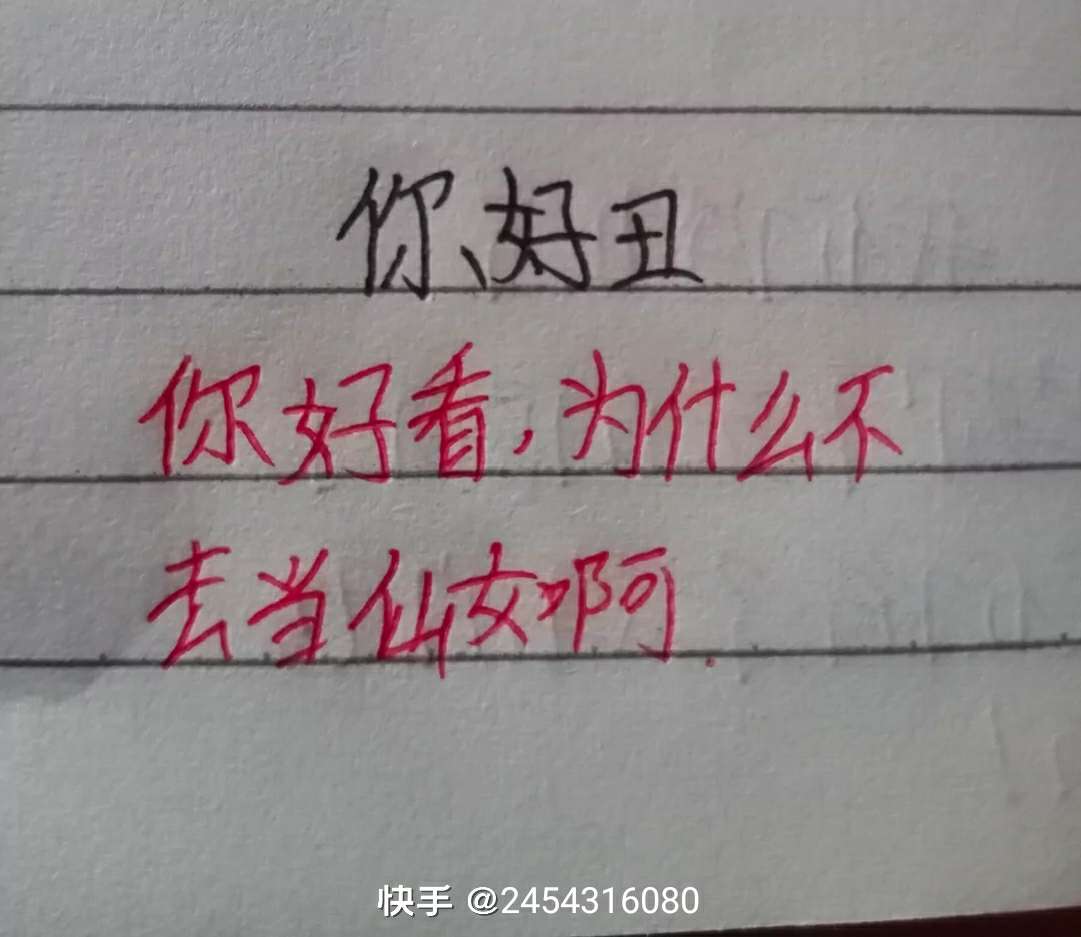 你好丑
你好看,为什么不
去当仙女啊.
快手 @2454316080